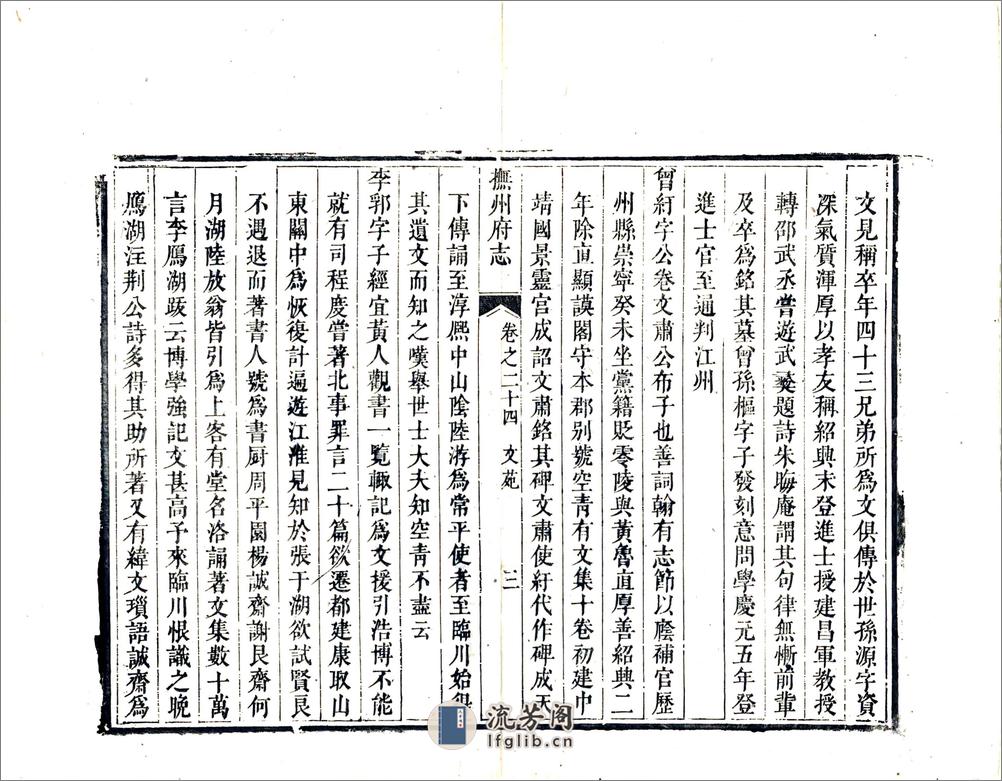 文見稱卒年四十三兄弟所爲文俱傳於世孫源字資
深氣質渾厚以孝友稱紹興末登進士授建昌軍教授
轉邵武丞嘗遊武夷題詩朱晦庵謂其句律無慚前輩
及卒爲銘其墓曾孫樞字子發刻意問學慶元五年登
進士官至通判江州
曾紆字公卷文肅公布子也善詞翰有志節以廕補官歷
州縣崇寧癸未坐黨籍貶零陵與黃魯直厚善紹興二
年除直顯謨閣守本郡别號空青有文集十卷初建中
靖國景靈宫成詔文肅銘其碑文肅使紆代作碑成天
撫州府志
卷之二十四 文苑
三
下傳誦至淳熙中山陰陸游爲常平使者至臨川始得
其遺文而知之嘆舉世士大夫知空青不盡云
李郛字子經宜黃人觀書一覽輒記爲文援引浩博不能
就有司程度嘗著北事罪言二十篇欲遷都建康取山
東關中爲恢復計遍遊江淮見知於張于湖欲試賢良
不遇退而著書人號爲書厨周平園楊誠齋謝艮齋何
月湖陸放翁皆引爲上客有堂名洛誦著文集數十萬
言李鴈湖跋云博學強記文甚高予來臨川恨識之晚
鴈湖注荆公詩多得其助所著又有緯文瑣語誠齋爲
流芳阁
lfglib.cn